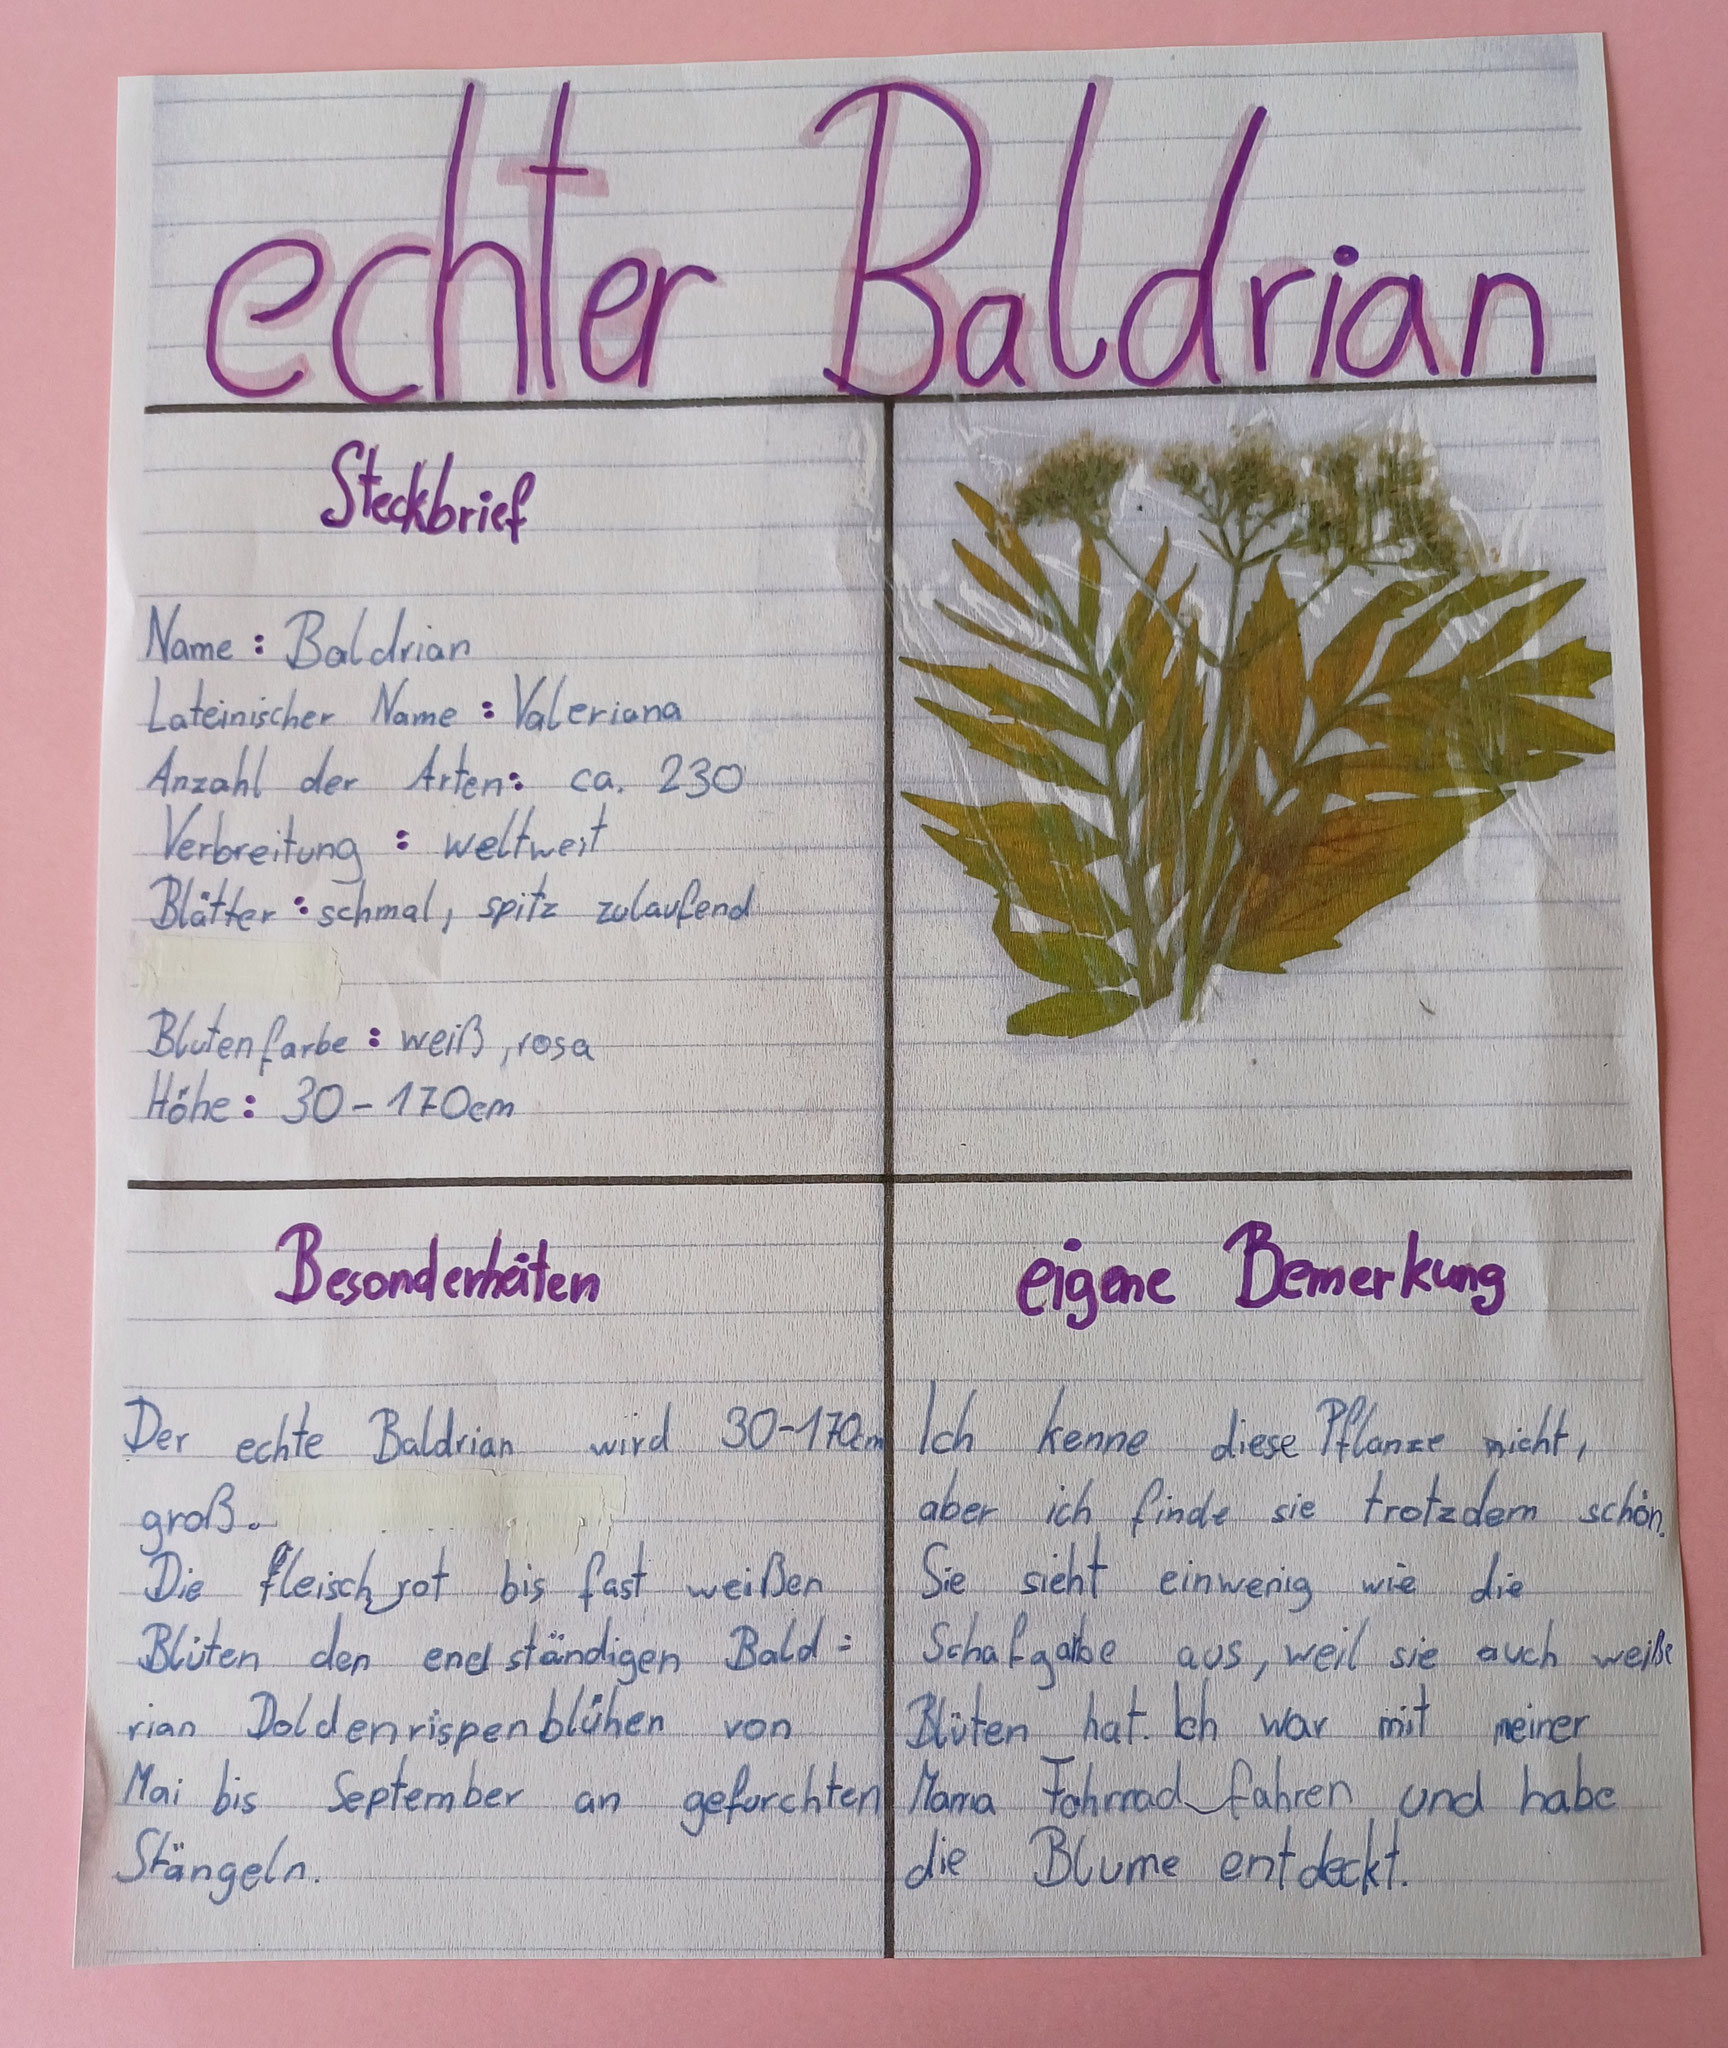 echter Baldrian
Steckbrief
Name: Baldrian
Lateinischer Name: Valeriana
Anzahl der Arten: ca. 230
Verbreitung: weltweit
Blätter: schmal, spitz zulaufend
Blütenfarbe: weiß, rosa
Höhe: 30-170cm
Besonderheiten
Der echte Baldrian wird 30-170cm
groß.
Die fleischrot bis fast weißen
Blüten den endständigen Bald=
rian Doldenrispen blühen von
Mai bis September an gefurchten
Stängeln.
eigene Bemerkung
Ich kenne diese Pflanze nicht,
aber ich finde sie trotzdem schön.
Sie sieht einwenig wie die
Schafgarbe aus, weil sie auch weiße
Blüten hat. Ich war mit meiner
Mama Fahrrad fahren und habe
die Blume entdeckt.